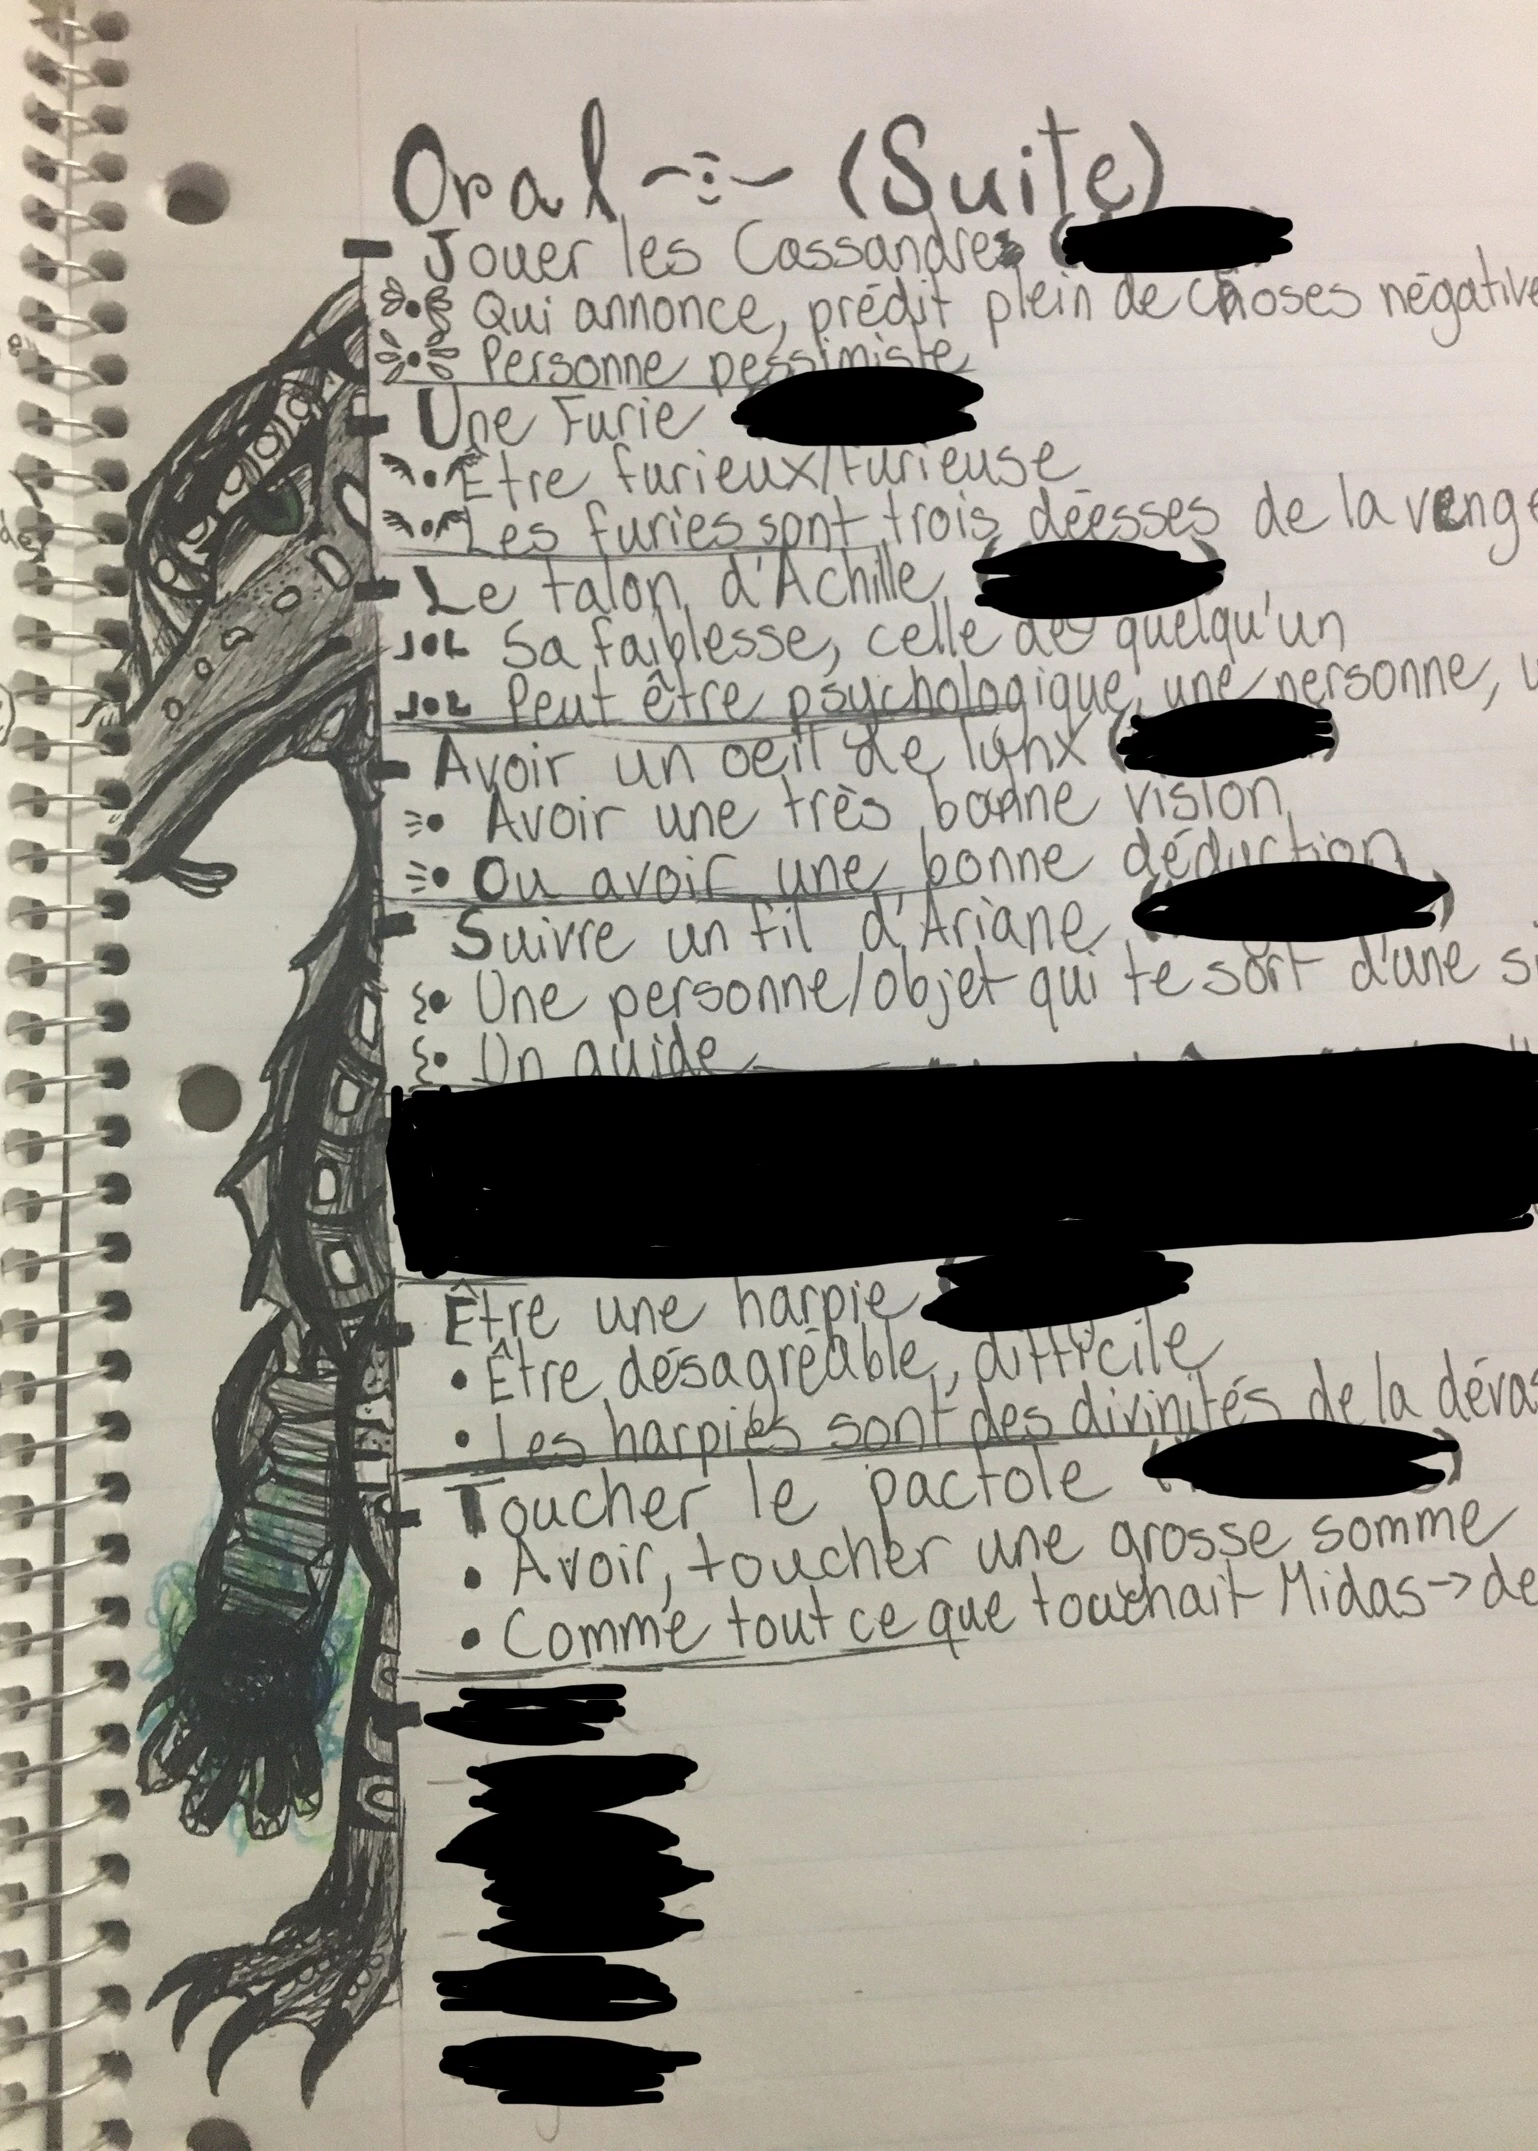 Oral (Suite)
Jouer les Cassandres
Qui annonce, prédit plein de choses négative
Personne pessimiste
Une Furie
Être furieux/furieuse
Les furies sont trois déesses de la veng
Le talon d'Achille
Sa faiblesse, celle de quelqu'un
Peut être psychologique, une personne,
Avoir un oeil de lynx
Avoir une très bonne vision
Ou avoir une bonne déduction
Suivre un fil d'Ariane
Une personne/objet qui te sort d'une si
Un guide
Être une harpie
• Être désagréable, difficile
• Les harpies sont des divinités de la déva
Toucher le pactole
• Avoir, toucher une grosse somme
• Comme tout ce que touchait Midas → de